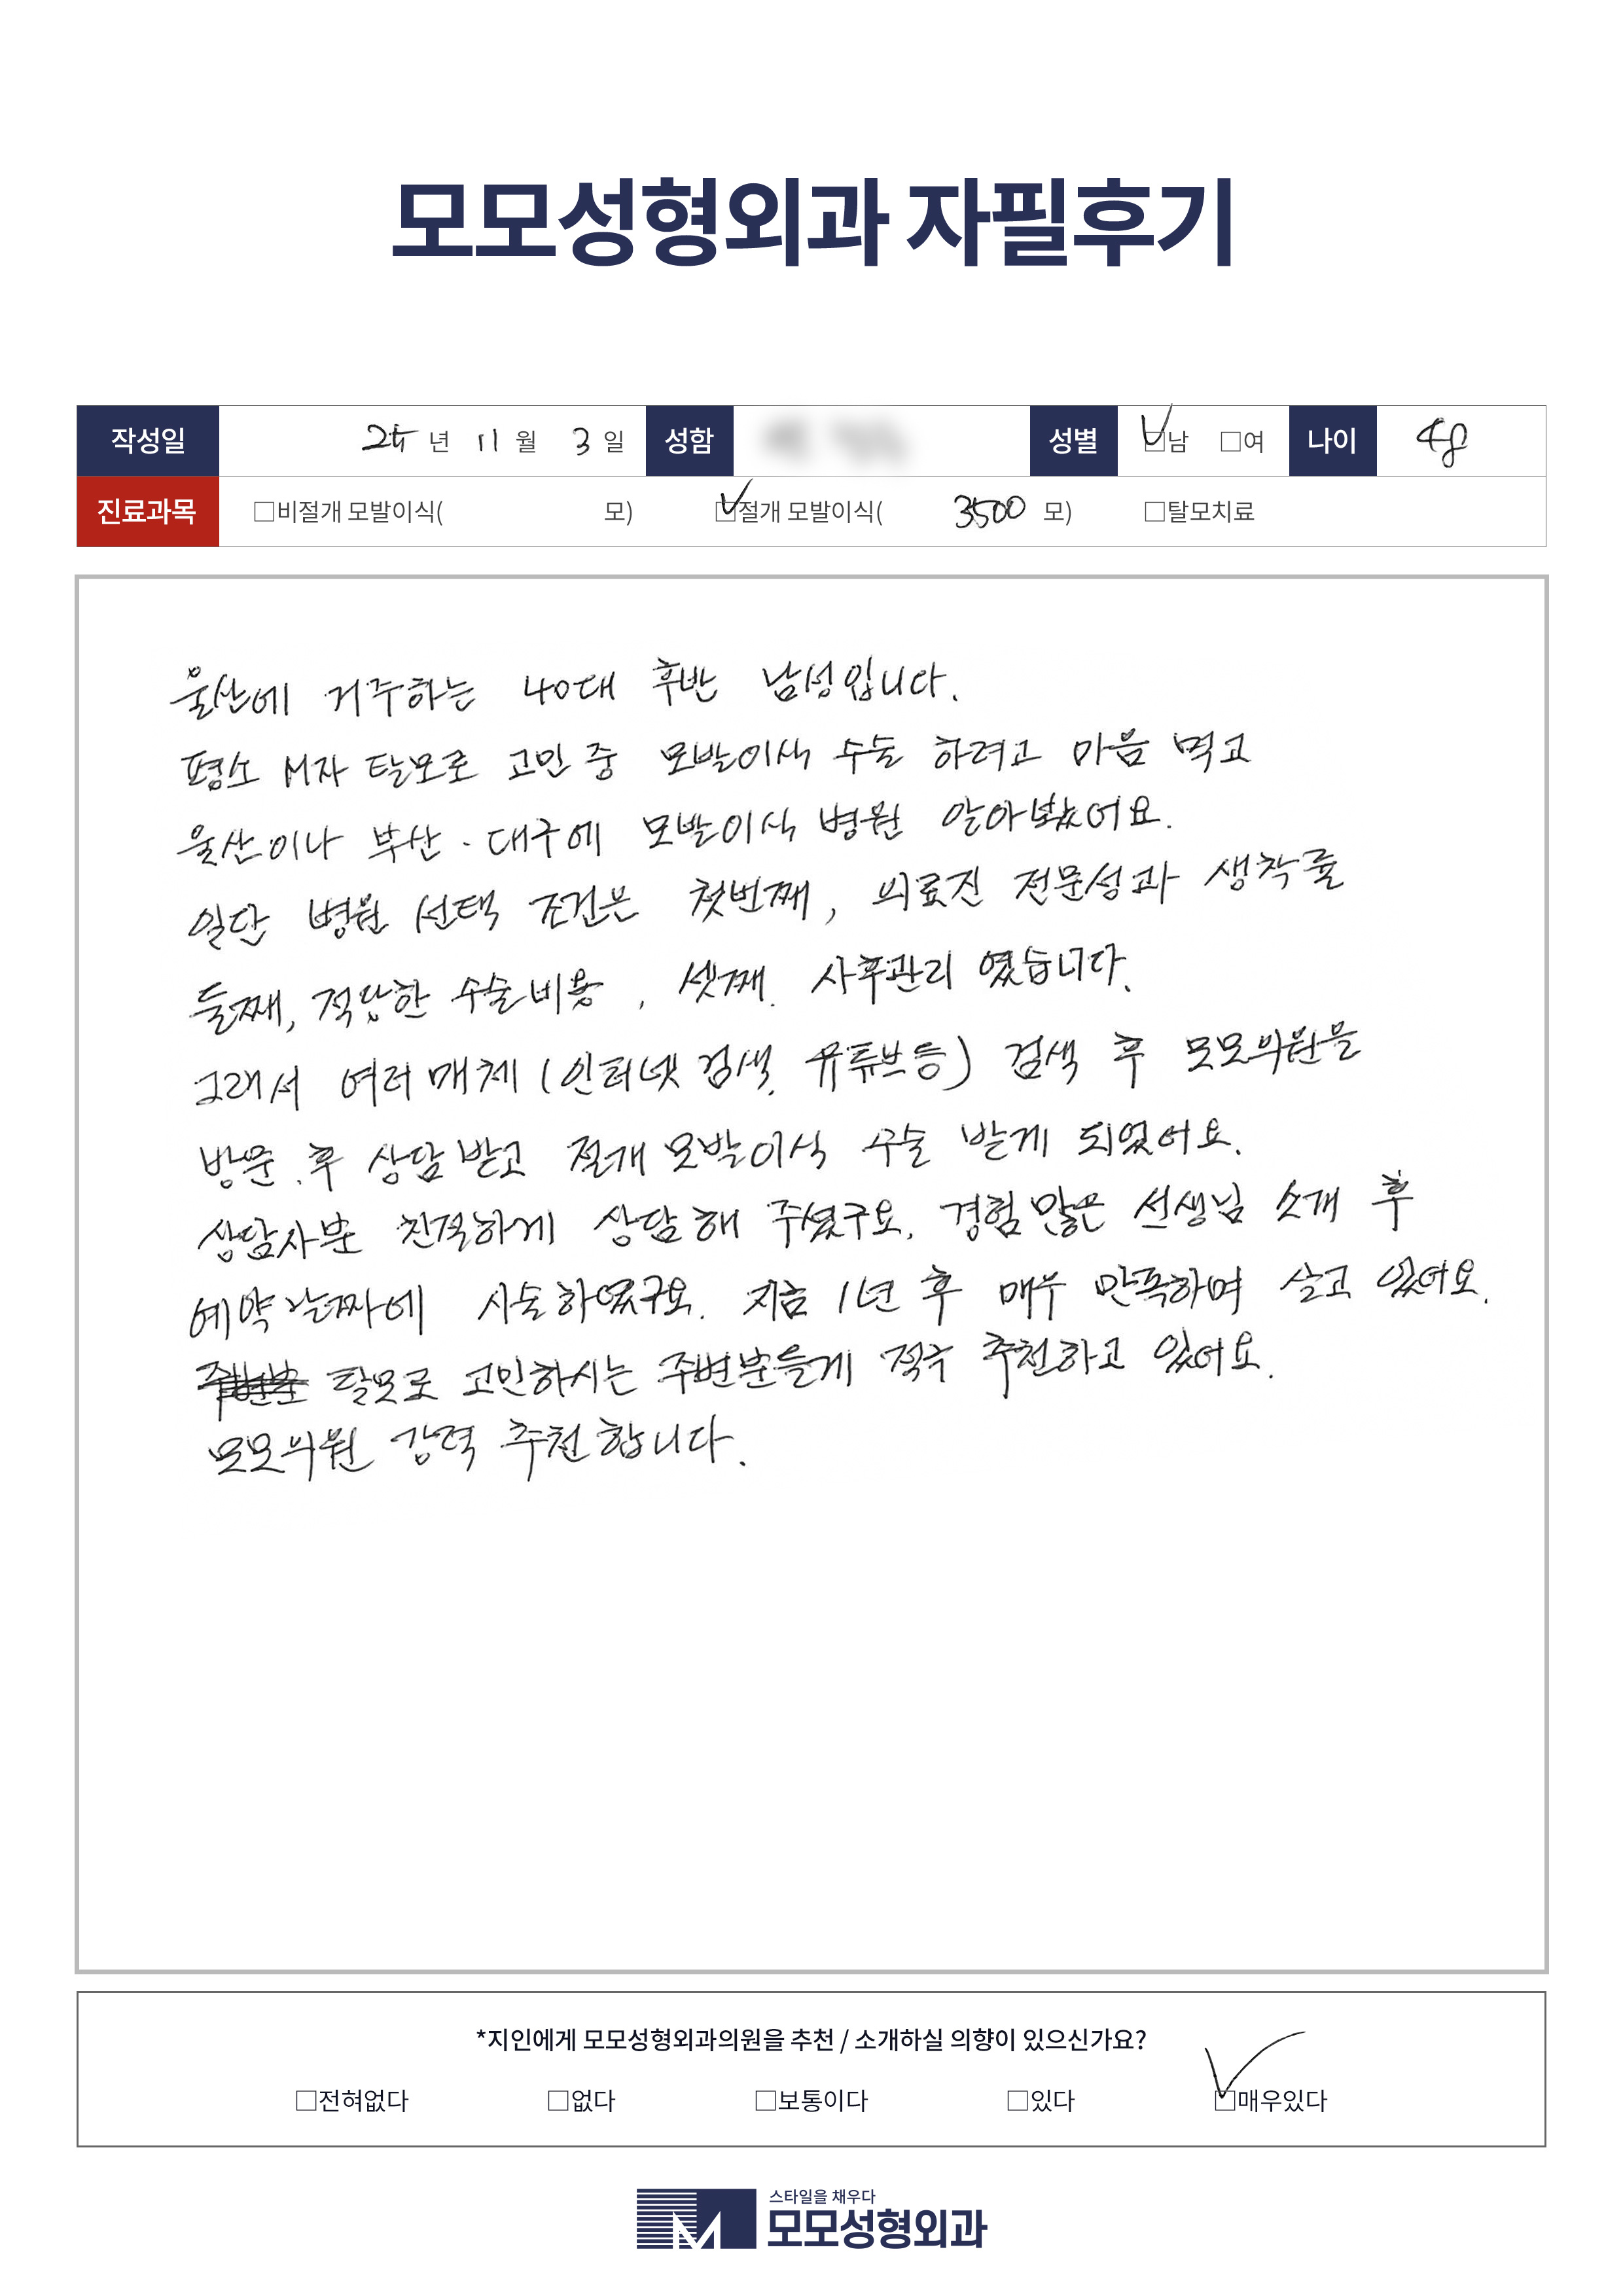 모모성형외과 자필후기
작성일 25년 11월 3일 성함 성별 ☑남 □여 나이 48
진료과목 □비절개 모발이식( 모) ☑절개 모발이식( 3500 모) □탈모치료
울산에 거주하는 40대 후반 남성입니다.
평소 M자 탈모로 고민 중 모발이식 수술 하려고 마음 먹고
울산이나 부산·대구에 모발이식 병원 알아봤어요.
일단 병원 선택 조건은 첫번째, 의료진 전문성과 생착률
둘째, 적당한 수술비용, 셋째. 사후관리 였습니다.
그래서 여러매체 (인터넷 검색, 유튜브등) 검색 후 모모의원을
방문.후 상담받고 절개 모발이식 수술 받게 되었어요.
상담사분 친절하게 상담해 주셨구요. 경험많은 선생님 소개 후
예약날짜에 시술하였구요. 지금 1년 후 매우 만족하며 살고 있어요.
탈모로 고민하시는 주변분들게 적극 추천하고 있어요.
모모의원 강력 추천합니다.
*지인에게 모모성형외과의원을 추천 / 소개하실 의향이 있으신가요?
□전혀없다 □없다 □보통이다 □있다 ☑매우있다
스타일을 채우다
모모성형외과